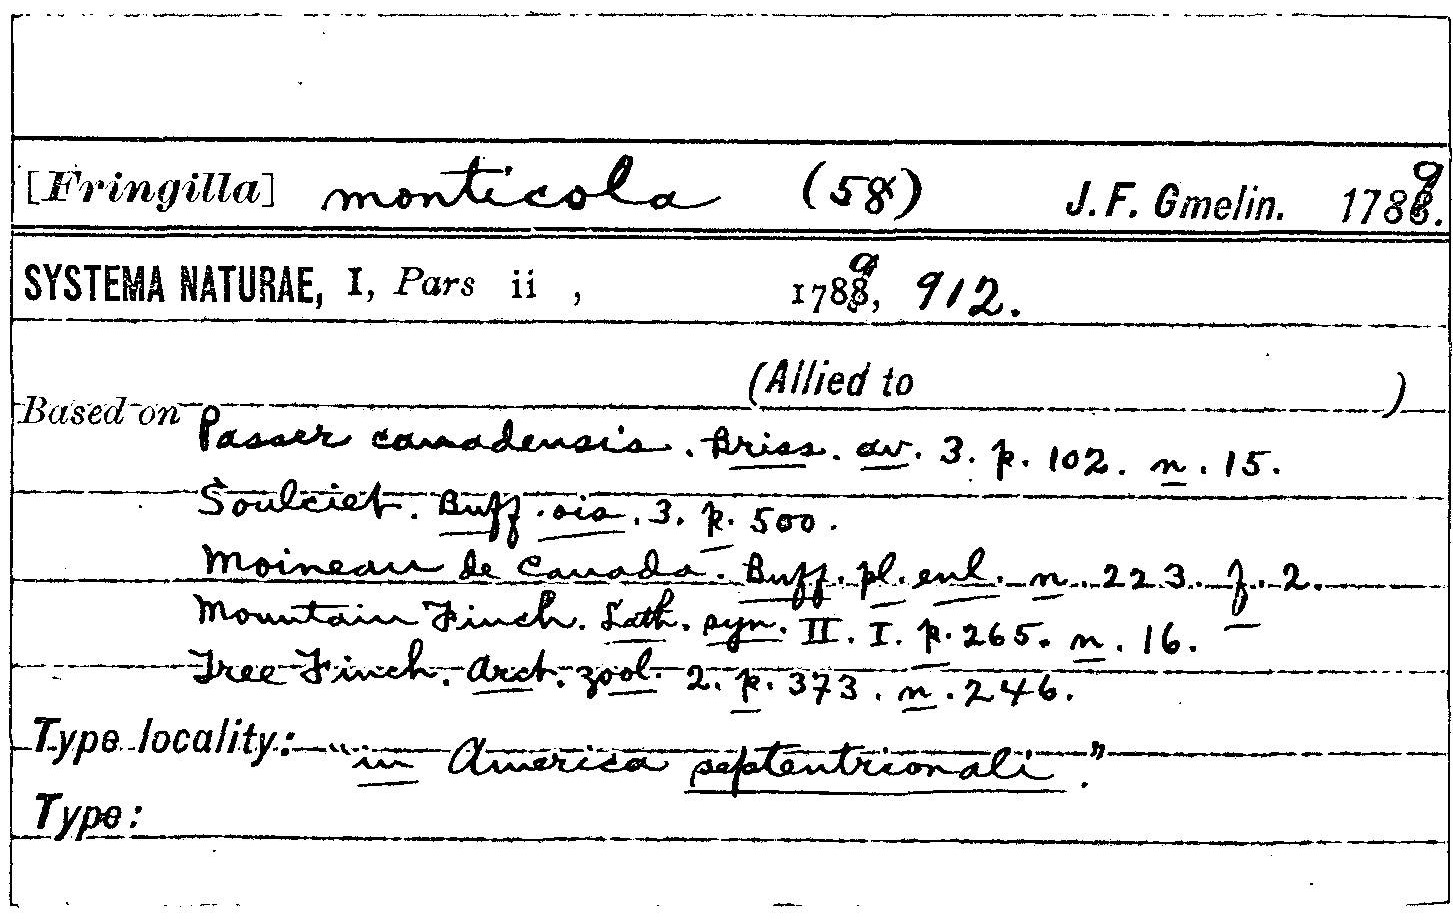 [Fringilla] monticola (58) J. F. Gmelin. 1789.
SYSTEMA NATURAE, I, Pars ii , 1789, 912.
(Allied to )
Based on Passer canadensis. Briss. av. 3. p. 102. n. 15.
Soulciet. Buff. ois. 3. p. 500.
Moineau de Canada. Buff. pl. enl. n. 223. f. 2.
Mountain Finch. Lath. syn. II. I. p. 265. n. 16.
Tree Finch. Arct. zool. 2. p. 373. n. 246.
Type locality: "in America septentrionali."
Type: